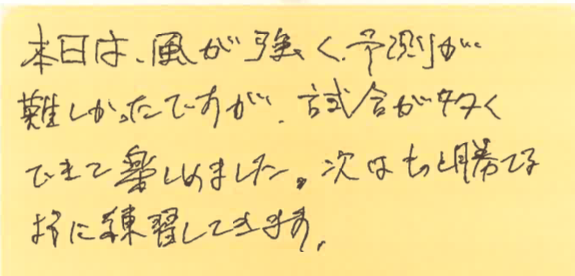 本日は、風が強く、予測が
難しかったですが、試合が多く
できて楽しめました。次はもっと勝てる
ように練習してきます。